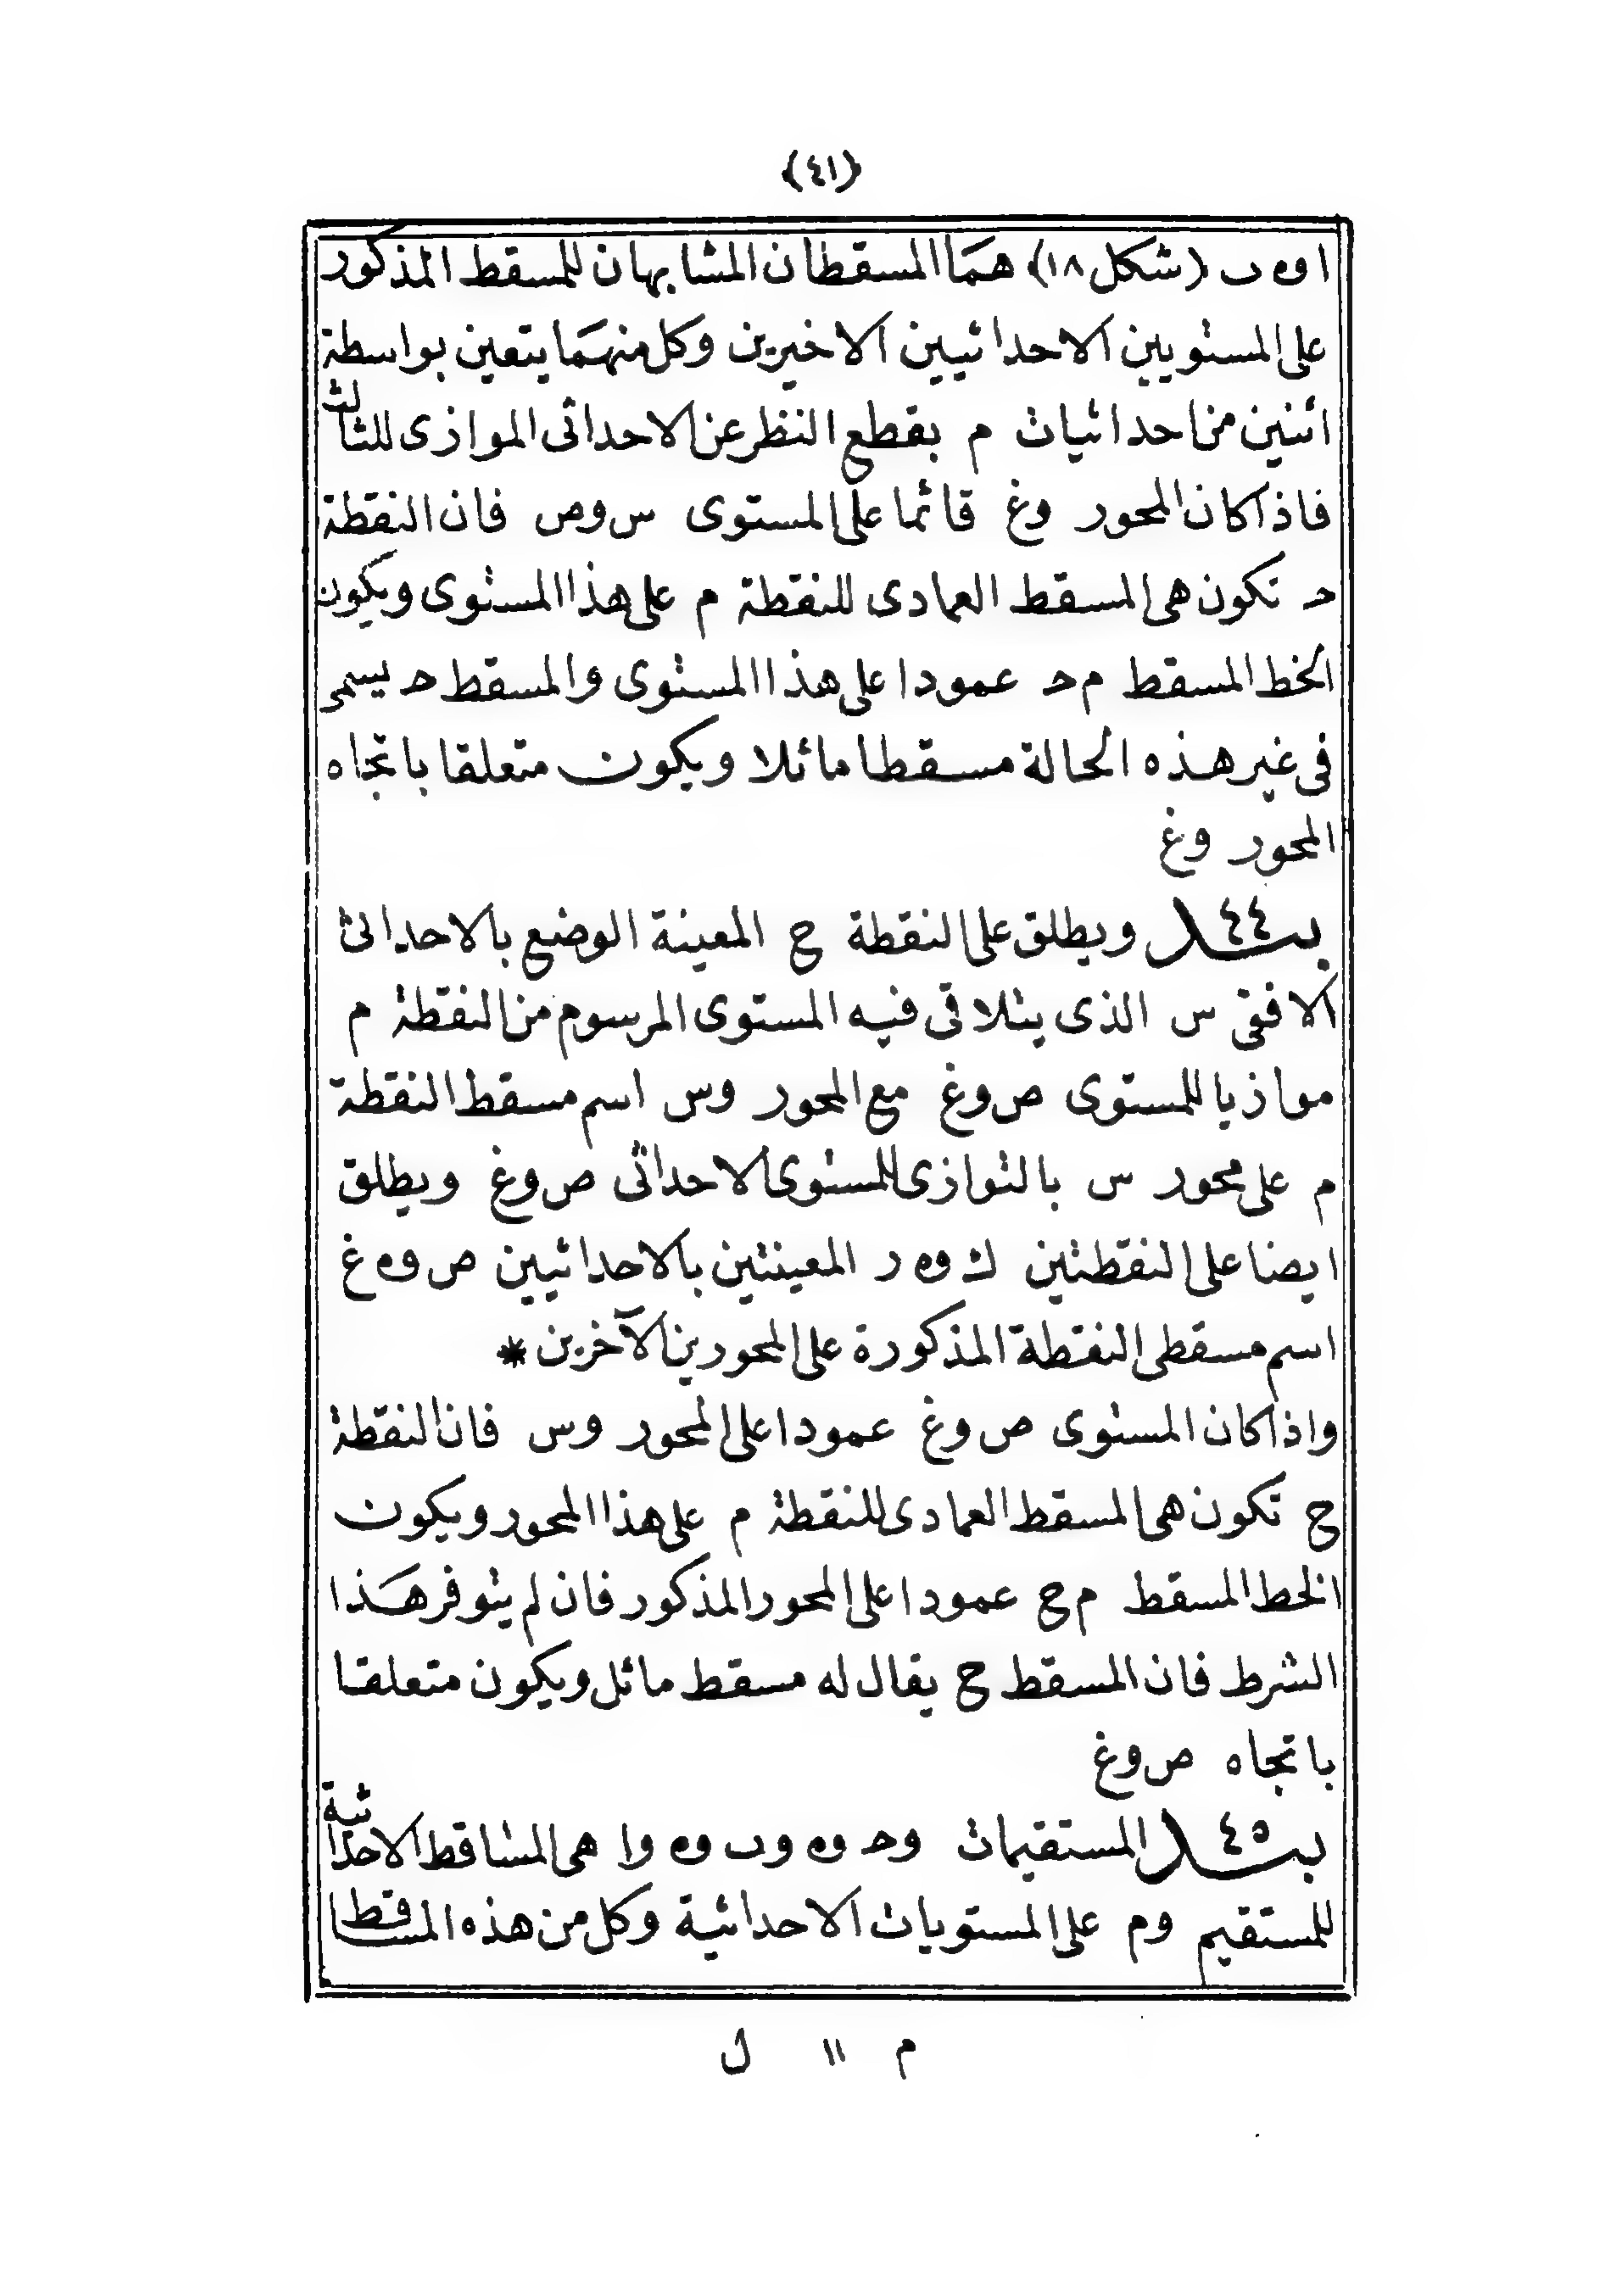 (٤١)
ا و ه ب (شكل ١٨) هما المسقطان المشابهان للمسقط المذكور
على المستويين الاحداثيين الاخيرين وكل منهما يتعين بواسطة
اثنين من احداثيات م بقطع النظر عن الاحداثى الموازى للثالث
فاذا كان المحور وغ قائما على المستوى س و ص فان النقطة
حـ تكون هى المسقط العمادى للنقطة م على هذا المستوى ويكون
الخط المسقط م حـ عمودا على هذا المستوى والمسقط حـ يسمى
فى غير هذه الحالة مسقطا مائلا ويكون متعلقا باتجاه
المحور وغ
بند ٤٤ ويطلق على النقطة ح المعينة الوضع بالاحداثى
الافقى س الذى يتلاقى فيه المستوى المرسوم من النقطة م
موازيا للمستوى ص و غ مع المحور وس اسم مسقط النقطة
م على محور س بالتوازى للمستوى الاحداثى ص و غ ويطلق
ايضا على النقطتين ك و ه ر المعينتين بالاحداثيين ص و ه غ
اسم مسقطى النقطة المذكورة على المحورين الآخرين *
واذا كان المستوى ص و غ عمودا على المحور وس فان النقطة
ح تكون هى المسقط العمادى للنقطة م على هذا المحور ويكون
الخط المسقط م ح عمودا على المحور المذكور فان لم يتوفر هذا
الشرط فان المسقط ح يقال له مسقط مائل ويكون متعلقا
باتجاه ص و غ
بند ٤٥ المستقيمات وحـ و ه وب و ه وا هى المساقط الاحداثية
للمستقيم وم على المستويات الاحداثية وكل من هذه المساقط
م ١١ ل